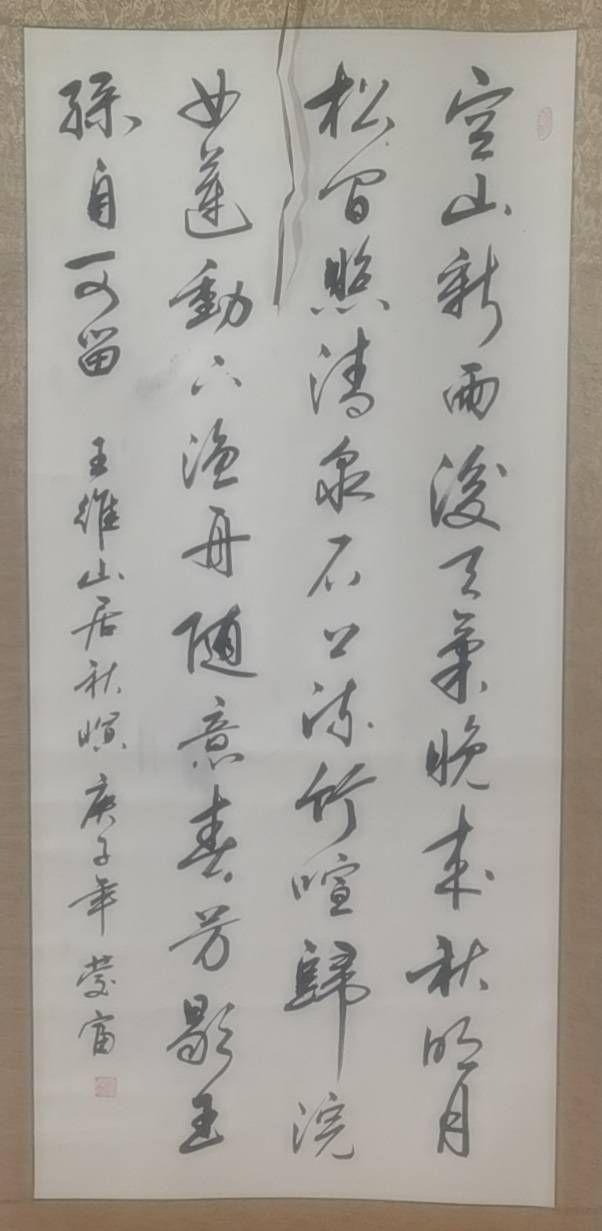 空山新雨後天氣晚來秋明月
松間照清泉石上流竹喧歸浣
女蓮動下漁舟隨意春芳歇王
孫自可留
王維山居秋暝庚子年慶富